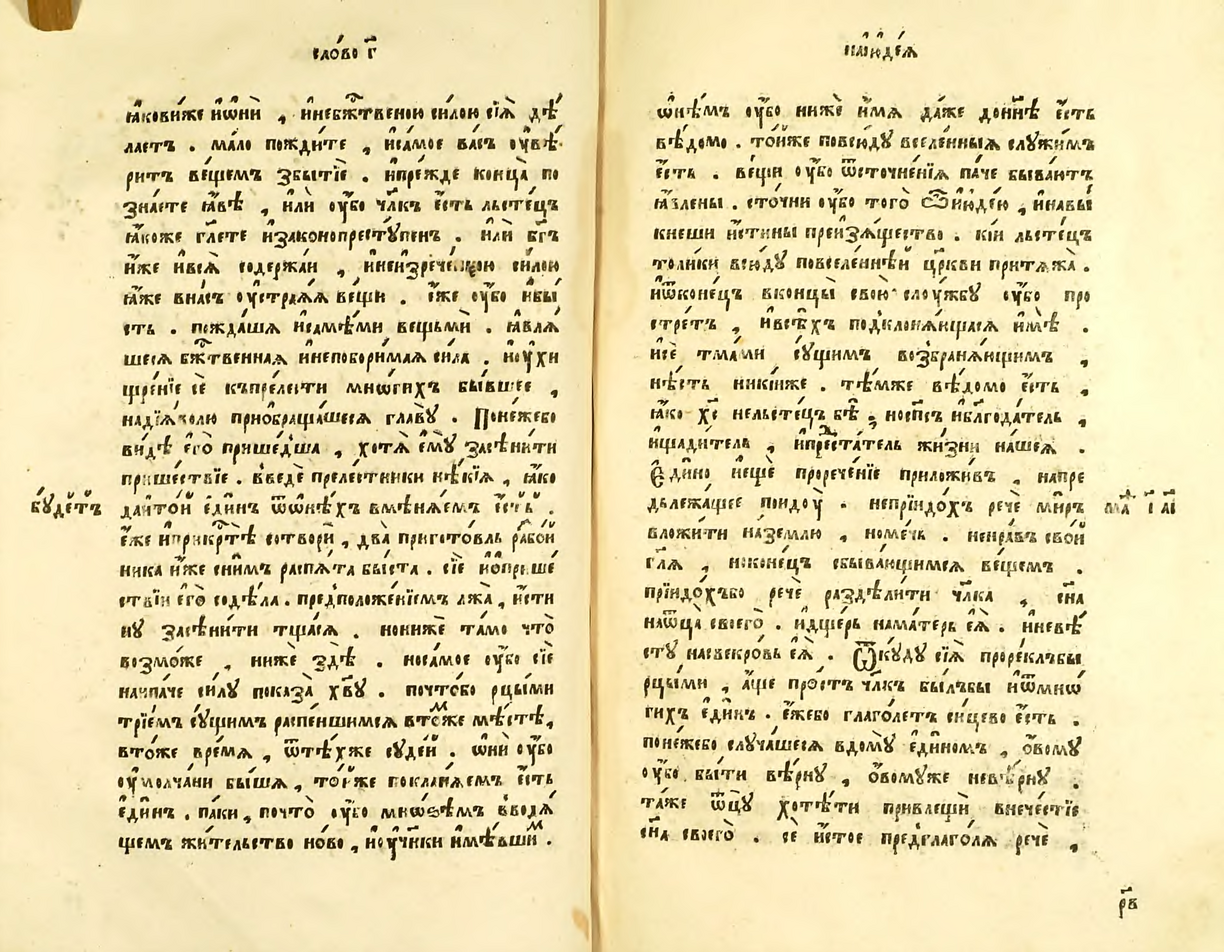 сло́во г҃
ꙗ҆ковиже и҆ѡ҆нѝ , и҆небж҃твеною силою сїѧ̀ дѣ́
лаетъ . мало пождите , и҆самое васъ ѹ҆вѣ́
ритъ ве́щемъ збытїе . и҆прежде конца̀ по
знаете ꙗ҆вѣ̀ , и҆лѝ ѹ҆́бо чл҃къ є҆́сть льсте́цъ
ꙗ҆коже гл҃ете и҆законопресту́пенъ . и҆лѝ бг҃ъ
и҆́же и҆всѧ̀ содержаи , и҆неизрече́нною си́лою
ꙗ҆́же вна́съ ѹ҆страѧ́ѧ ве́щи . є҆́же ѹ҆́бо и҆бы́
сть . пождашѧ и҆самѣ́ми вещьмѝ . ꙗ҆влѧ́
шесѧ бж҃твеннаѧ и҆непобори́маѧ си́ла . и҆ѹ҆хи
щре́нїе сѐ къпреле́сти мно́гихъ бы́вшее ,
надїѧ́волю приѡбраща́шесѧ главꙋ̀ . Поне́жебо
ви́дѣ є҆го̀ прише́дша , хотѧ̀ є҆мꙋ̀ засѣни́ти
прише́ствїе . введѐ преле́стники нѣ́кїѧ , ꙗ҆́ко
бꙋ́детъ
даи҆то́й є҆ди́нъ ѿѻ҆нѣ́хъ вмѣнѧ́емъ є҆́сть .
є҆́же и҆прикрⷭ҇тѣ̀ сотворѝ , два̀ пригото́вль разбо́й
ника и҆́же сни́мъ распѧ́та бы́ста . сїѐ и҆поприше́
ствїи є҆гѡ̀ содѣ́ла . предположе́нїемъ лжа̀ , и҆́сти
нꙋ засѣни́ти тща́сѧ . нонижѐ та́мо что̀
возмо́же , нижѐ здѣ̀ . носа́мое ѹ҆́бо сїѐ
наипа́че си́лꙋ показа̀ хв҃ꙋ . почто́бо рцы́ми
трїе́мъ сꙋ́щимъ распе́ншимсѧ вто́мже мѣ́стѣ ,
вто́же вре́мѧ , ѿтѣ́хже сꙋде́й . ѻ҆нѝ ѹ҆́бо
ѹ҆мо́лчани бы́шѧ , то́йже покланѧ́емъ є҆́сть
є҆ди́нъ . па́ки , почто̀ ѹ҆́бо мно́ѕѣмъ вводѧ́
щемъ жи́тельство но́во , и҆ѹ҆чн҃ки и҆мѣ́вшимъ .
наї҆ꙋде́ѧ
ѻ҆нѣ́мъ ѹ҆́бо нижѐ и҆́мѧ да́же дони́нѣ є҆́сть
вѣ́домо . то́йже повсю́дꙋ вселе́нныѧ слꙋжи́мъ
є҆́сть . ве́щи ѹ҆́бо ѿсточне́нїѧ па́че быва́ютъ
ꙗ҆вле́ны . сточнѝ ѹ҆́бо того̀ ѽи҆ю҆де́ю , и҆навы́
кнеши и҆́стины преизѧ́щество . кі́и льсте́цъ
толи́ки всю́дꙋ повселе́ннѣй цр҃кви притѧжа̀ .
и҆ѿконе́цъ вконцы̀ свою̀ слꙋ́жбꙋ ѹ҆́бо про
стре́тъ , и҆всѣ́хъ подклонѧ́ющасѧ и҆мѣ̀ .
и҆сѐ тма́ми сꙋ́щимъ возбранѧ́ющимъ ,
нѣ́сть ники́иже . тѣ́мже вѣ́домо є҆́сть ,
ꙗ҆́ко хс҃ нельсте́цъ бѣ̀ , носп҃съ и҆блг҃ода́тель ,
и҆щади́тель , и҆предста́тель жи́зни на́шеѧ .
Є҆ди́но и҆ещѐ прорече́нїе приложи́въ , напре
дьлежа́щее пои́дꙋ . непрїидо́хъ речѐ ми́ръ
мѳ҃ і҃ аі҃
вложи́ти назе́млю , номе́чь . и҆нра́въ сво́й
гл҃ѧ , и҆коне́цъ сбыва́ющимсѧ ве́щемъ .
прїидо́хъбо речѐ раздѣли́ти чл҃ка , сн҃а
наѿца̀ своего̀ . и҆дще́рь нама́терь є҆ѧ̀ . и҆невѣ́
стꙋ насвекро́вь є҆ѧ̀ . Ѿкꙋ́дꙋ сїѧ̀ проре́клъбы
рцы́ми , а҆́ще про́стъ чл҃къ бы́лъбы и҆ѿмно́
гихъ є҆ди́нъ . є҆́жебо глаго́летъ си́цево є҆́сть .
поне́жебо слꙋча́шесѧ вдомꙋ̀ є҆ди́номъ , о҆́вомꙋ
ѹ҆́бо бы́ти вѣ́рнꙋ , о҆́вомꙋже невѣ́рнꙋ .
та́же ѿцꙋ̀ хотѣ́ти привлещѝ внече́стїе
сн҃а своего̀ . сѐ и҆́стое предглаго́лѧ речѐ ,
рв҃